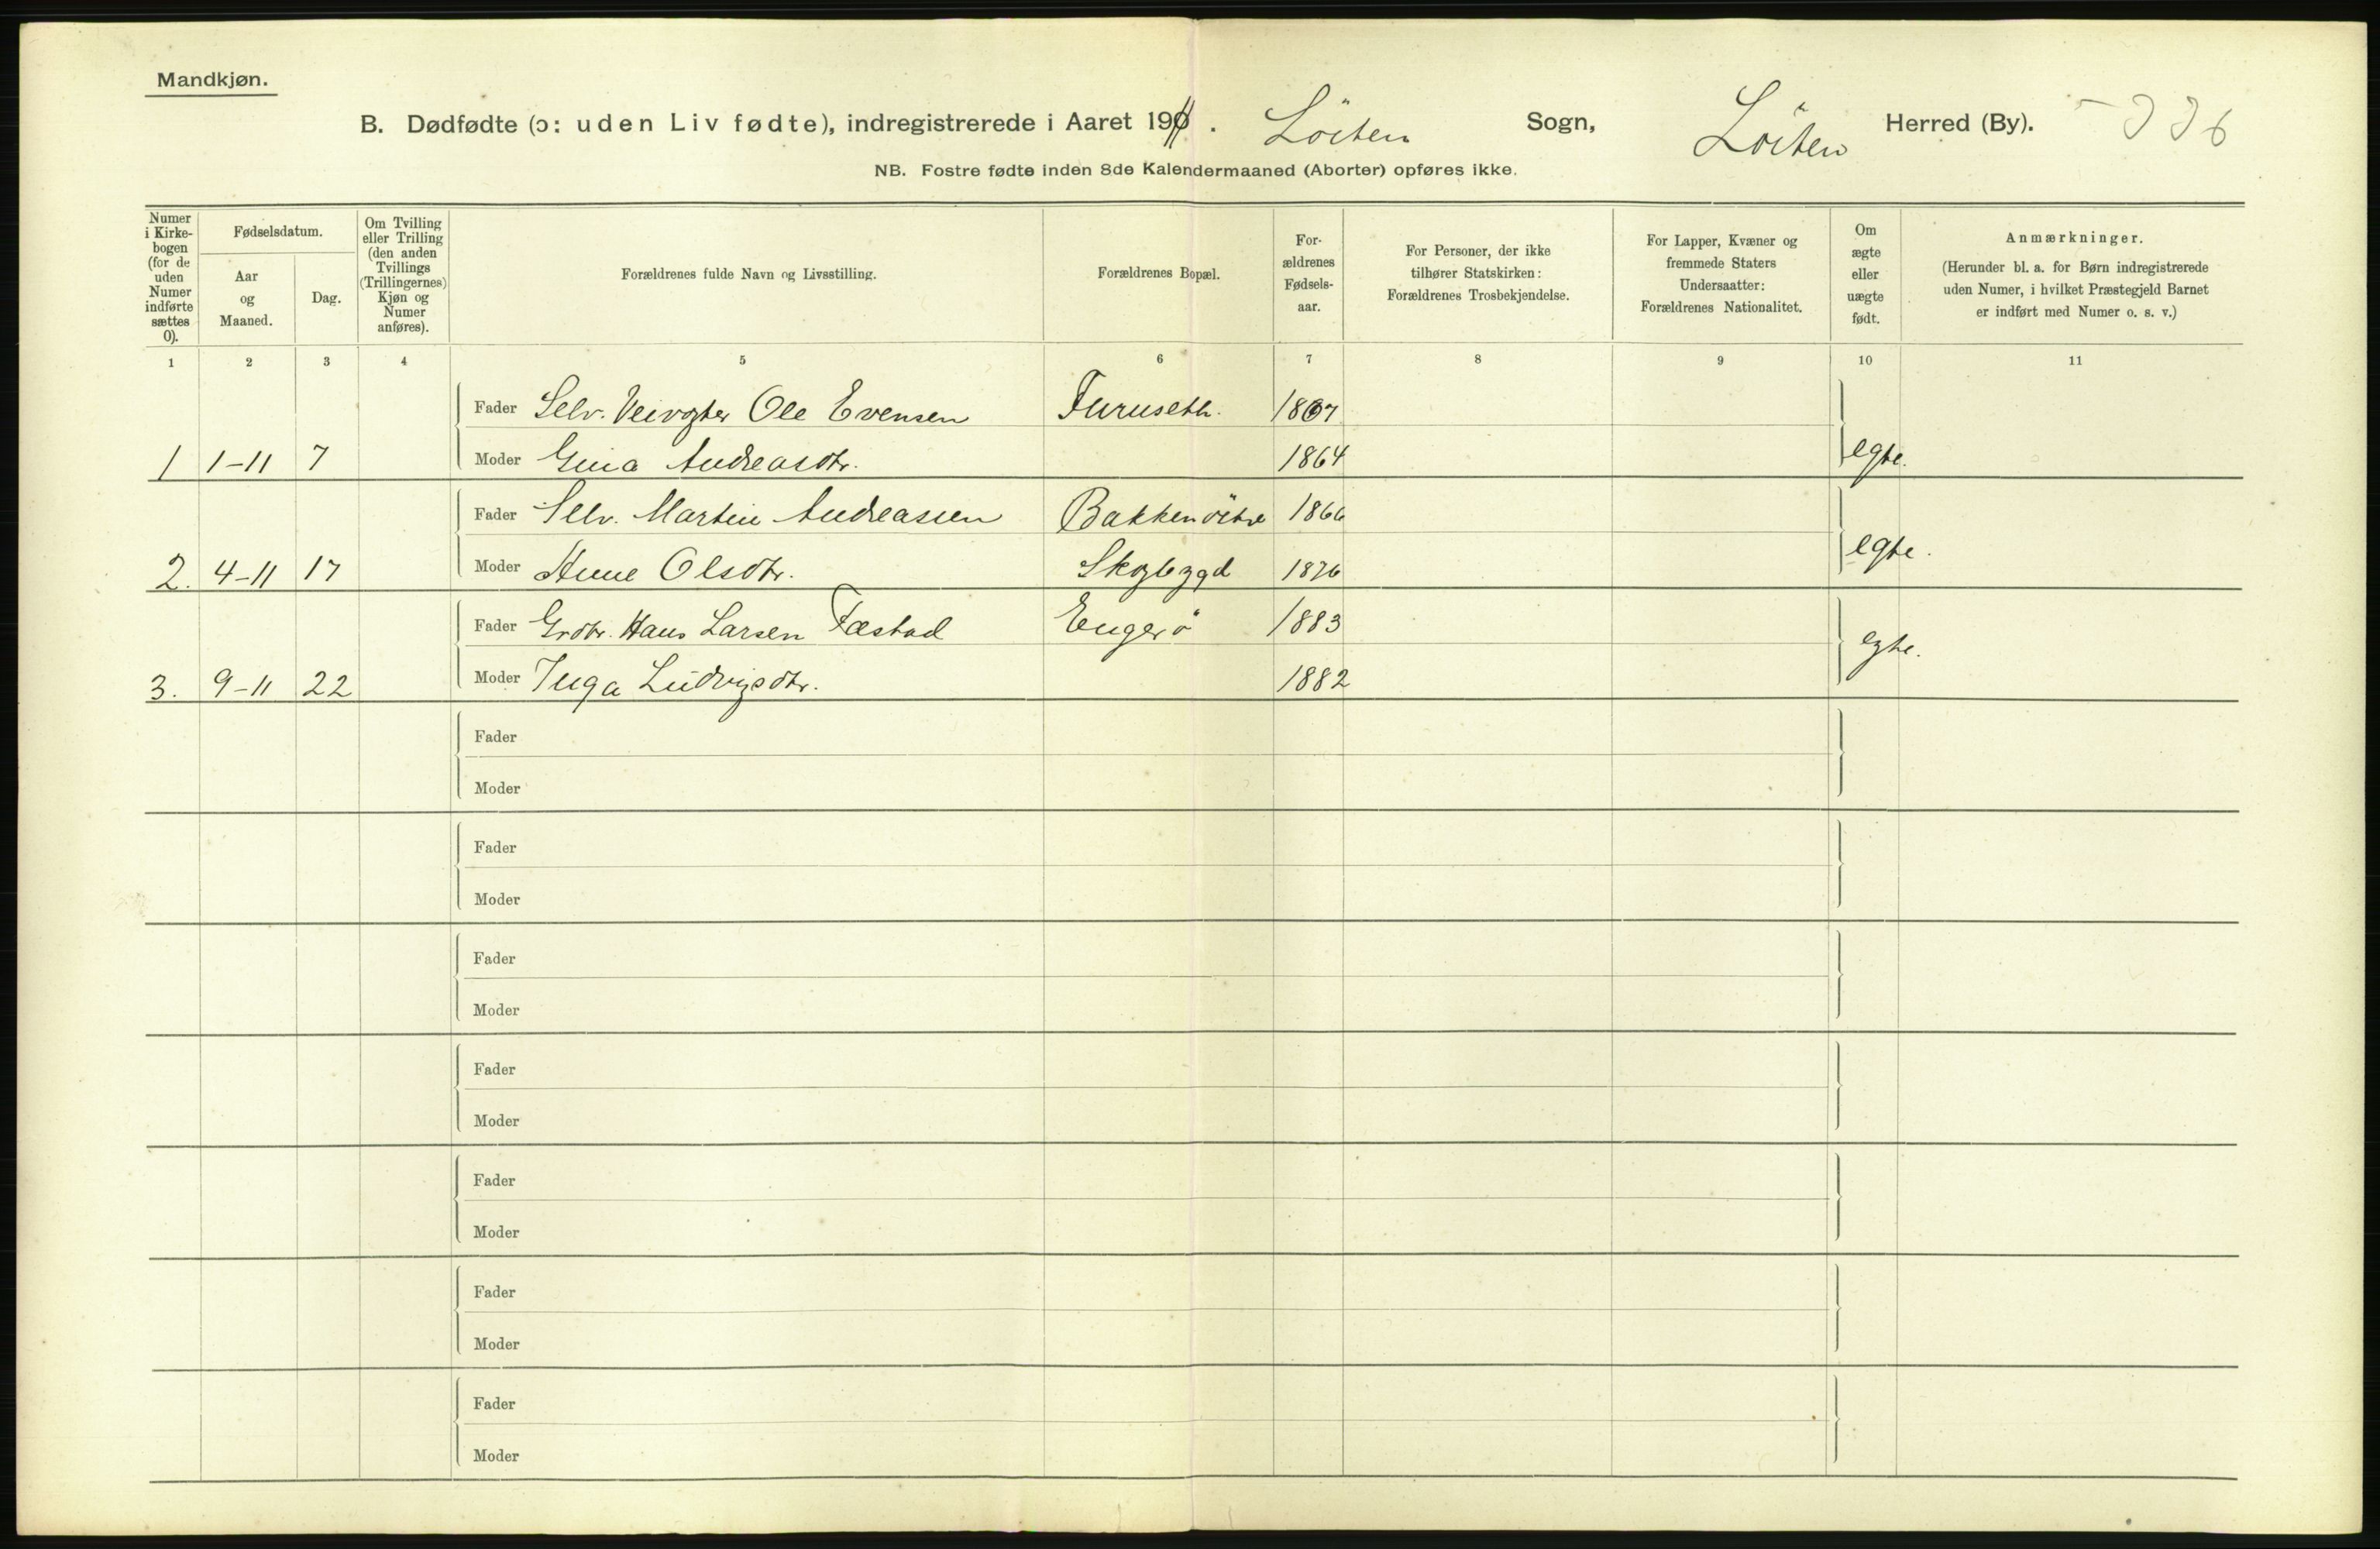 Mandkjøn.
B. Dødfødte (ɔ: uden Liv fødte), indregistrerede i Aaret 1911. Löiten Sogn, Löiten Herred (By).
NB. Fostre fødte inden 8de Kalendermaaned (Aborter) opføres ikke.
Numer i Kirke-bogen (for de uden Numer indførte sættes 0).
Fødselsdatum.
Aar og Maaned.
Dag.
Om Tvilling eller Trilling (den anden Tvillings (Trillingernes) Kjøn og Numer anføres).
Forældrenes fulde Navn og Livsstilling.
Forældrenes Bopæl.
For-ældrenes Fødsels-aar.
For Personer, der ikke tilhører Statskirken: Forældrenes Trosbekjendelse.
For Lapper, Kvæner og fremmede Staters Undersaatter: Forældrenes Nationalitet.
Om ægte eller uægte født.
Anmærkninger.
(Herunder bl. a. for Børn indregistrerede uden Numer, i hvilket Præstegjeld Barnet er indført med Numer o. s. v.)
1 2 3 4 5 6 7 8 9 10 11
Fader Selv. Veivogter Ole Evensen Furuseth. 1867
1 1-11 7 Moder Gina Andreasdtr. 1864 egte.
Fader Selv. Martin Andreassen Bakken östre 1866
2. 4-11 17 Moder Anne Olsdtr. Skogbygd 1876 egte.
Fader Grdbr. Hans Larsen Fæstad Engerö 1883
3. 9-11 22 Moder Inga Ludvigsdtr. 1882 egte.
Fader
Moder
Fader
Moder
Fader
Moder
Fader
Moder
Fader
Moder
Fader
Moder
Fader
Moder